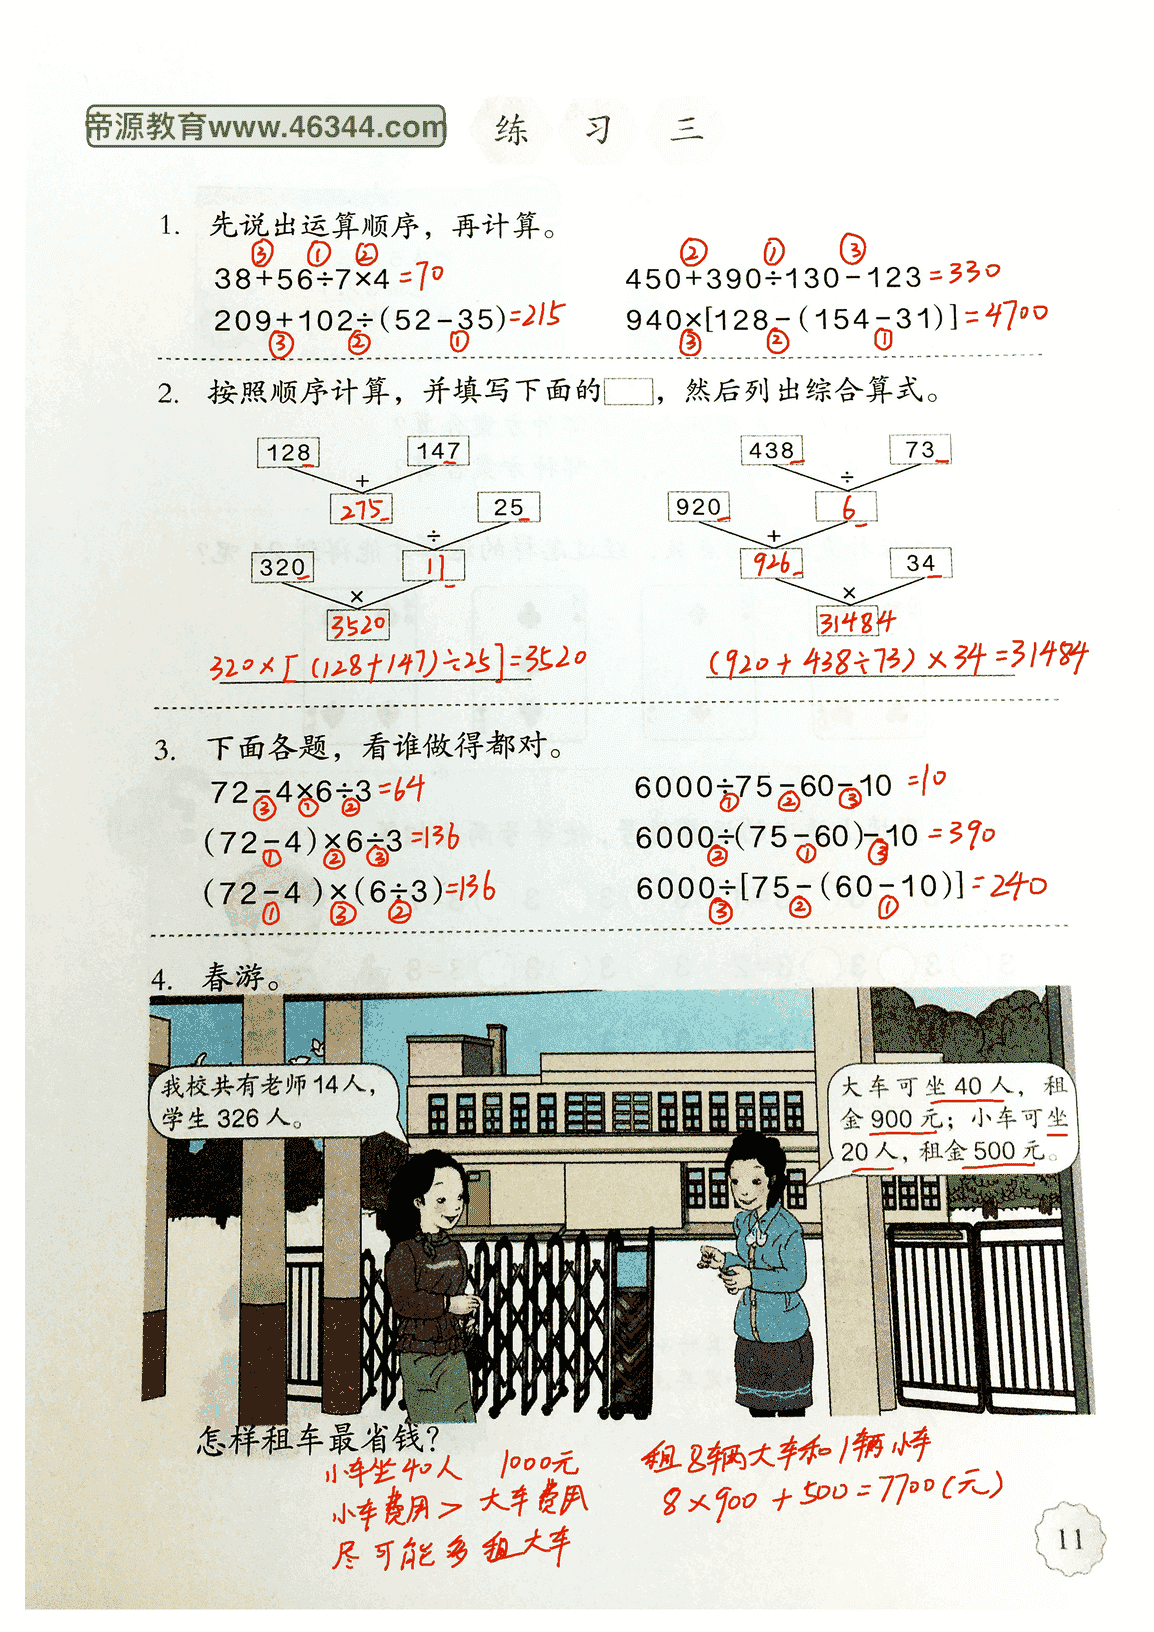 帝源教育www.46344.com
练 习 三
1. 先说出运算顺序，再计算。
③ ① ② ② ① ③
38+56÷7×4=70 450+390÷130-123=330
209+102÷(52-35)=215 940×[128-(154-31)]=4700
③ ② ① ③ ② ①
2. 按照顺序计算，并填写下面的□，然后列出综合算式。
128 147 438 73
+ ÷
275 25 920 6
÷ +
320 11 926 34
× ×
3520 31484
320×[(128+147)÷25]=3520 (920+438÷73)×34=31484
3. 下面各题，看谁做得都对。
72-4×6÷3=64 6000÷75-60-10=10
③ ① ② ① ② ③
(72-4)×6÷3=136 6000÷(75-60)-10=390
① ② ③ ② ① ③
(72-4)×(6÷3)=136 6000÷[75-(60-10)]=240
① ③ ② ③ ② ①
4. 春游。
我校共有老师14人，
学生326人。
大车可坐40人，租
金900元；小车可坐
20人，租金500元。
怎样租车最省钱？
小车坐40人 1000元
小车费用＞大车费用
尽可能多租大车
租8辆大车和1辆小车
8×900+500=7700(元)
11